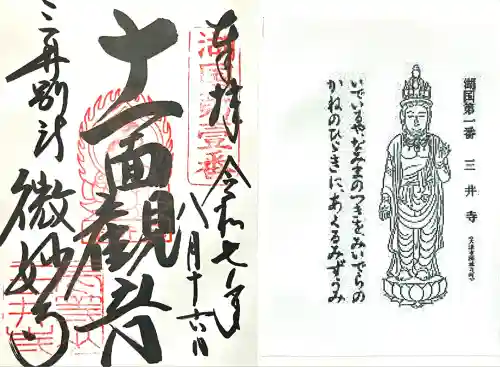 奉拝
令和七年
八月十六日
湖国第壱番
十一面観音
三井別所
微妙寺
湖国第一番 三井寺
いでいるや、なみまのつきをみいでらの
かねのひゞきに、あくるみずうみ